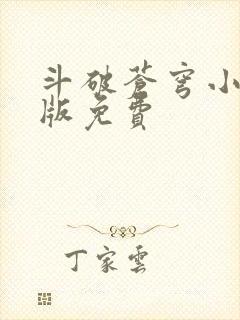 斗破苍穹小
版免費
丁家雲